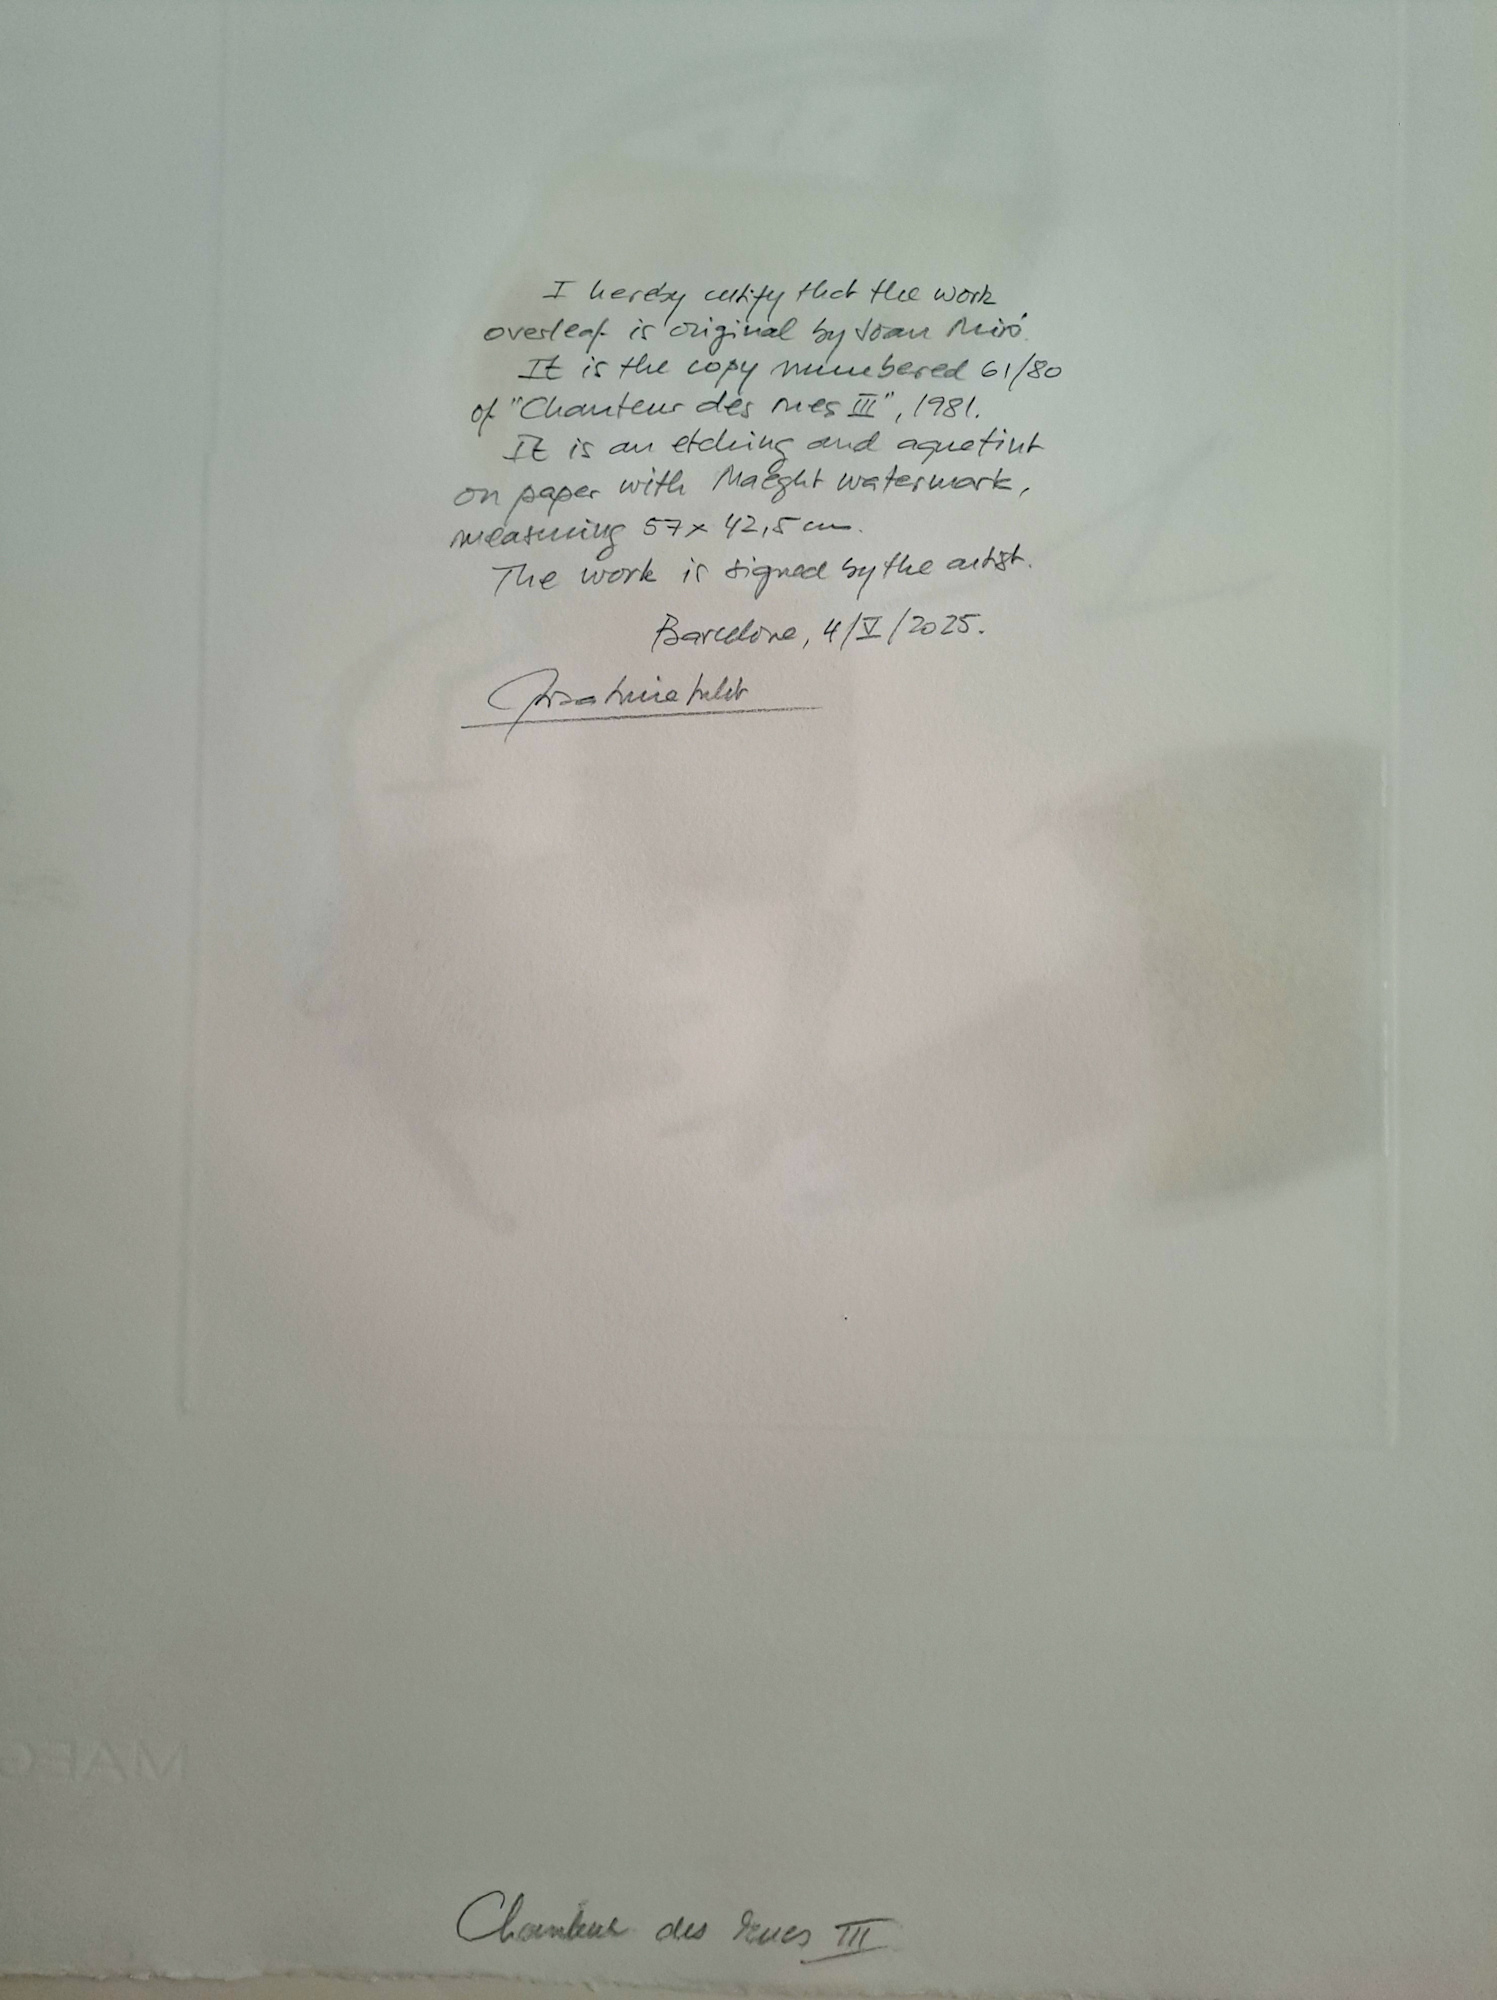 I hereby certify that the work
overleaf is original by Joan Miró.
It is the copy numbered 61/80
of "Chanteur des rues III", 1981.
It is an etching and aquatint
on paper with Maeght watermark,
measuring 57 x 42,5 cm.
The work is signed by the artist.
Barcelona, 4/V/2025.
MAEG
Chanteur des Rues III